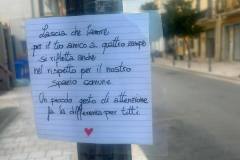 Lascia che l'amore
per il tuo amico a quattro zampe
si rifletta anche
nel rispetto per il nostro
spazio comune.
Un piccolo gesto di attenzione
fa la differenza per tutti.